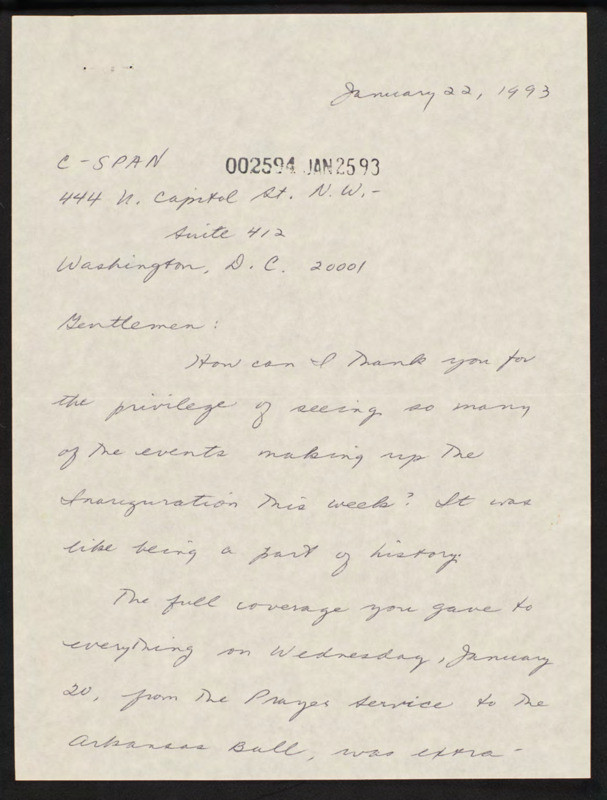 January 22, 1993
C-SPAN
002594 JAN 25 93
444 N. Capitol St. N.W.-
Suite 412
Washington, D.C. 20001
Gentlemen:
How can I thank you for
the privilege of seeing so many
of the events making up the
Inauguration this week? It was
like being a part of history.
The full coverage you gave to
everything on Wednesday, January
20, from the Prayer Service to the
Arkansas Ball, was extra-